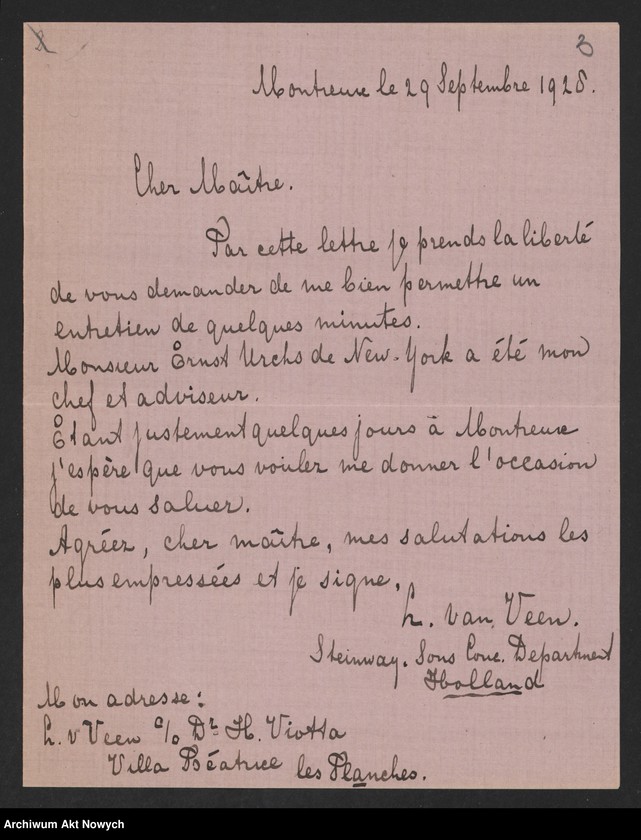 3
Montreux le 29 Septembre 1928.
Cher Maître.
Par cette lettre je prends la liberté
de vous demander de me bien permettre un
entretien de quelques minutes.
Monsieur Ernst Urchs de New-York a été mon
chef et adviseur.
Étant justement quelques jours à Montreux
j'espère que vous voulez me donner l'occasion
de vous saluer.
Agréez, cher maître, mes salutations les
plus empressées et je signe,
h. van Veen.
Steinway. Sons Conc. Department
Holland
Mon adresse:
h. v Veen c/o Dr H. Viotta
Villa Béatrice les Planches.
Archiwum Akt Nowych